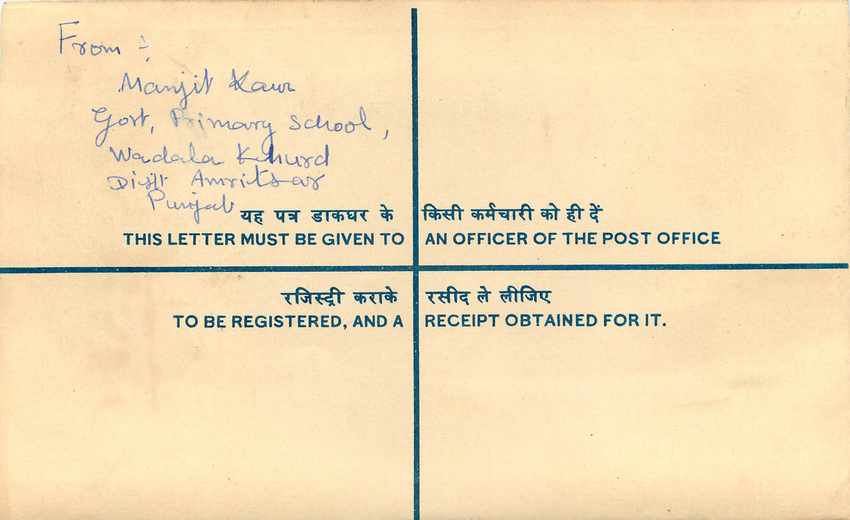 From :-
Manjit Kaur
Govt, Primary School,
Wadala Khurd
Distt Amritsar
Punjab
यह पत्र डाकघर के किसी कर्मचारी को ही दें
THIS LETTER MUST BE GIVEN TO AN OFFICER OF THE POST OFFICE
रजिस्ट्री कराके रसीद ले लीजिए
TO BE REGISTERED, AND A RECEIPT OBTAINED FOR IT.